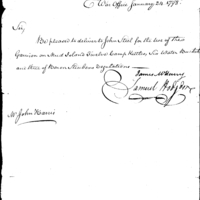 War Office January 24. 1798.
Sir,
Be pleased to deliver to John Stiel for the use of the
Garrison on Mud Island Twelve Camp Kettles, Six Water Buckets
and three of Baron Steubens regulations
James McHenry
Samuel Hodgdon
Mr John Harris